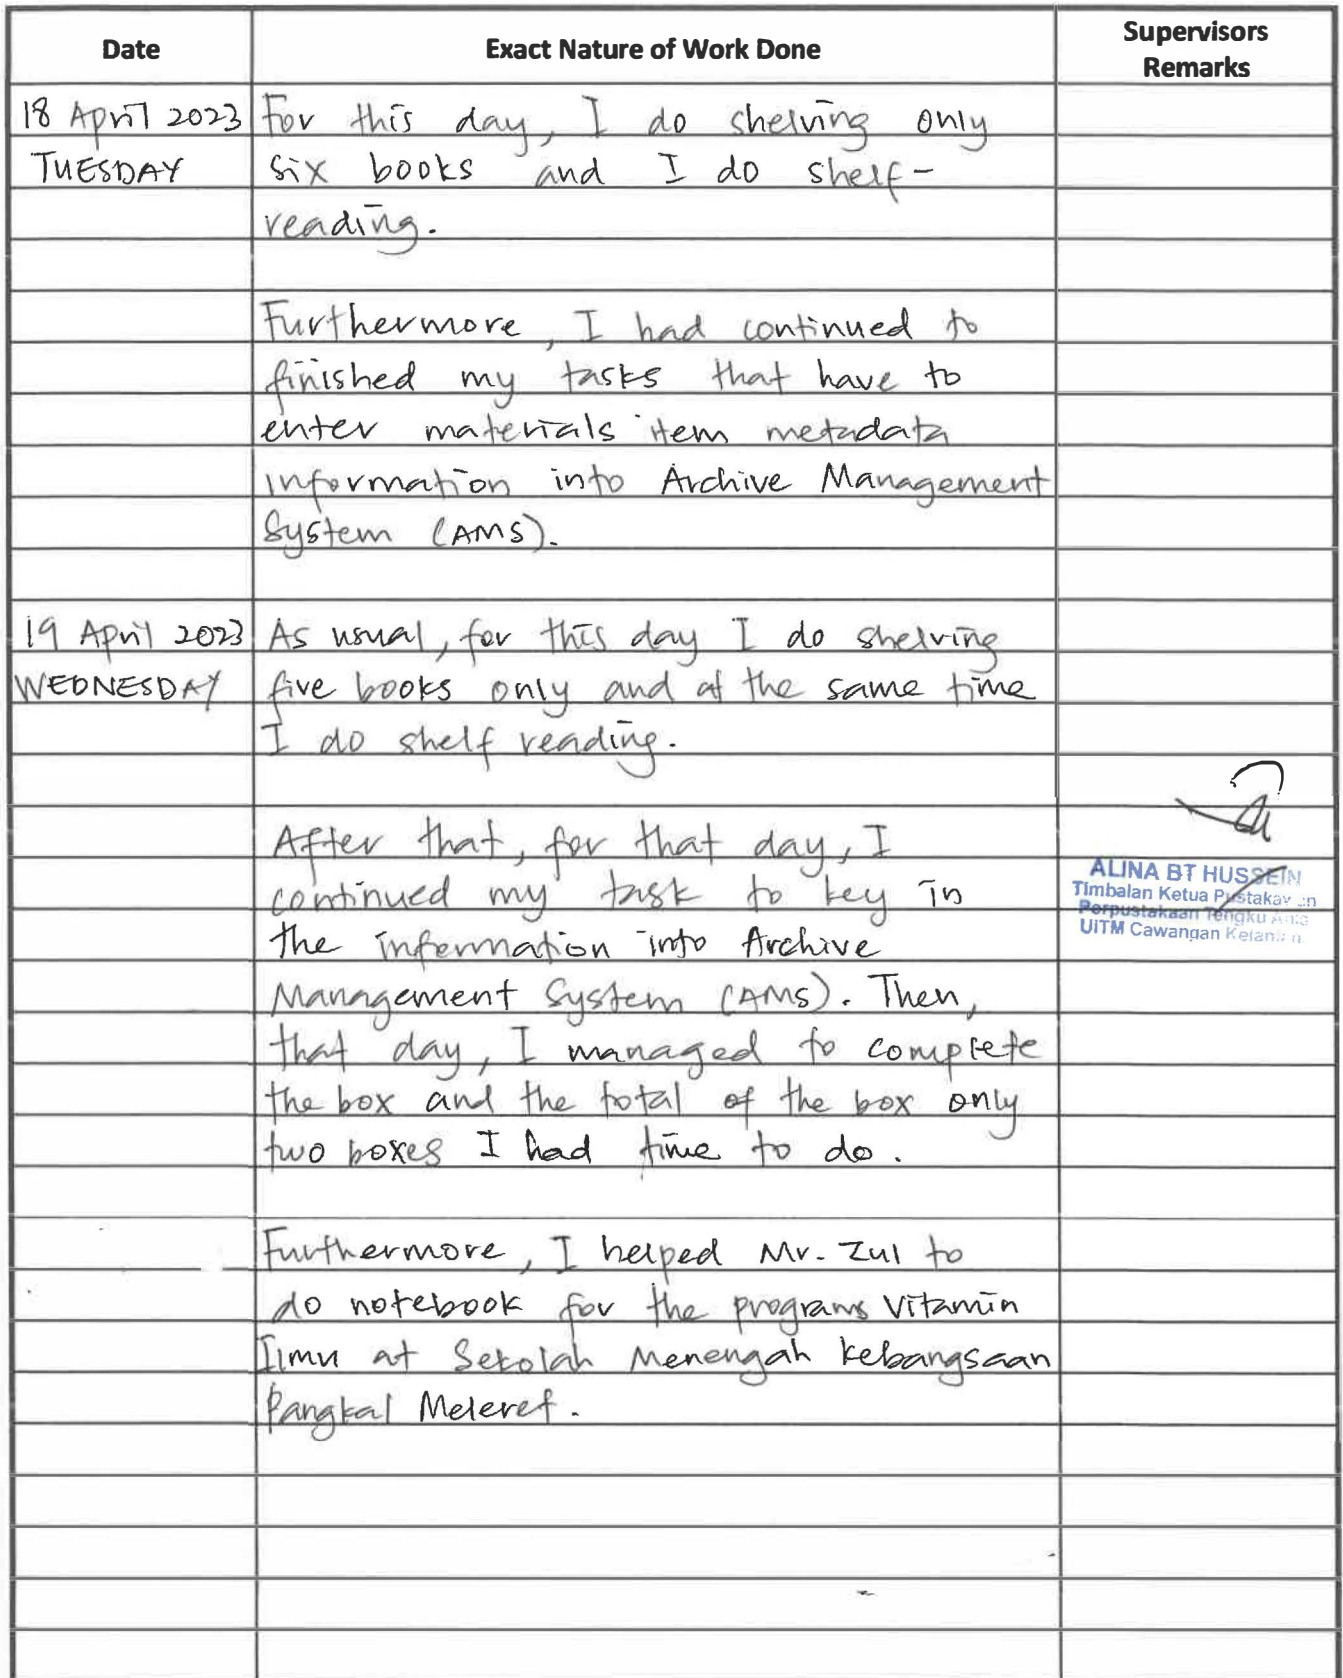 Date
Exact Nature of Work Done
Supervisors
Remarks
18 April 2023
TUESDAY
For this day, I do shelving only
six books and I do shelf-
reading.
Furthermore, I had continued to
finished my tasks that have to
enter materials item metadata
information into Archive Management
System (AMS).
19 April 2023
WEDNESDAY
As usual, for this day I do shelving
five books only and at the same time
I do shelf reading.
After that, for that day, I
continued my task to key in
the information into Archive
Management System (AMS). Then,
that day, I managed to complete
the box and the total of the box only
two boxes I had time to do.
Furthermore, I helped Mr. Zul to
do notebook for the programs Vitamin
Ilmu at Sekolah Menengah Kebangsaan
Pangkal Meleret.
ALINA BT HUSSEIN
Timbalan Ketua
Perpustakaan Tengku
UiTM Cawangan